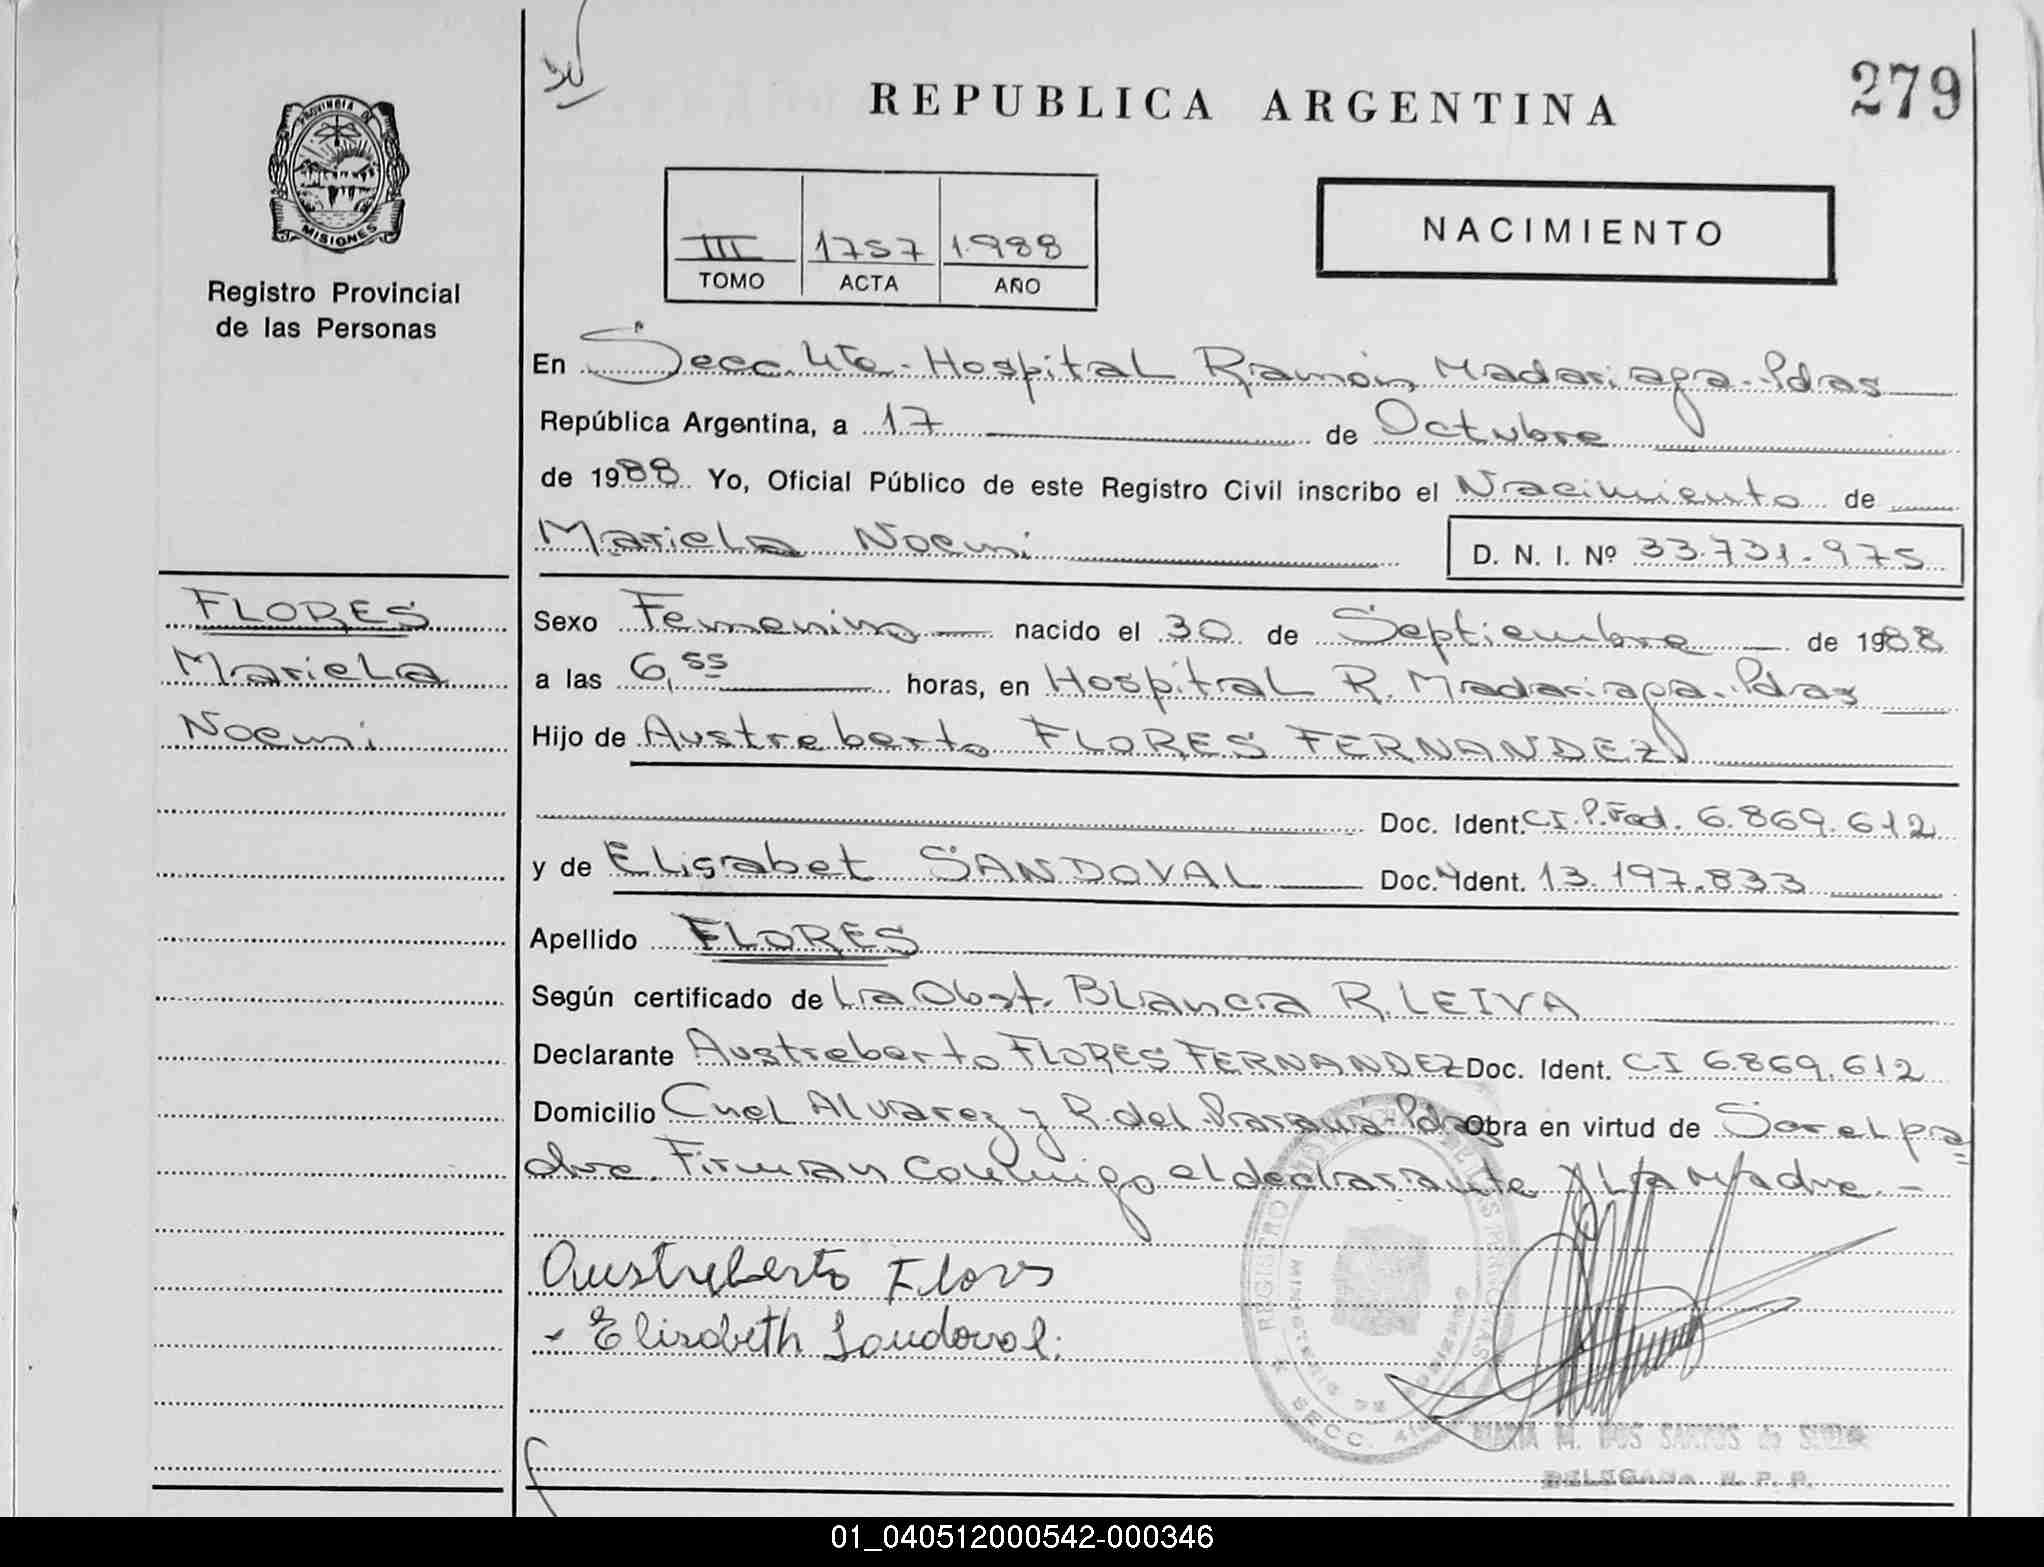 279
REPUBLICA ARGENTINA
PROVINCIA DE
MISIONES
Registro Provincial
de las Personas
III 1757 1.988
TOMO ACTA AÑO
NACIMIENTO
En Secc. 4ta.- Hospital Ramón Madariaga - Pdas
República Argentina, a 17 de Octubre
de 1988 Yo, Oficial Público de este Registro Civil inscribo el Nacimiento de
Mariela Noemi D. N. I. Nº 33.731.975
FLORES
Mariela
Noemi
Sexo Femenino nacido el 30 de Septiembre de 1988
a las 6,55 horas, en Hospital R. Madariaga - Pdas
Hijo de Austreberto FLORES FERNANDEZ
Doc. Ident. CI. P. Fed. 6.869.612
y de Elisabet SANDOVAL Doc. Ident. 13.197.833
Apellido FLORES
Según certificado de La Obst. Blanca R. LEIVA
Declarante Austreberto FLORES FERNANDEZ Doc. Ident. CI 6.869.612
Domicilio Cnel Alvarez y R. del Paraná - Pdas Obra en virtud de Ser el pa=
dre. Firman conmigo el declarante y La Madre.-
Austreberto Flores
- Elisabeth Sandoval.
REGISTRO
MINISTERIO DE GOBIERNO
SECC. 4ta
MARIA M. DOS SANTOS de
DELEGADA R. P. P.
01_040512000542-000346